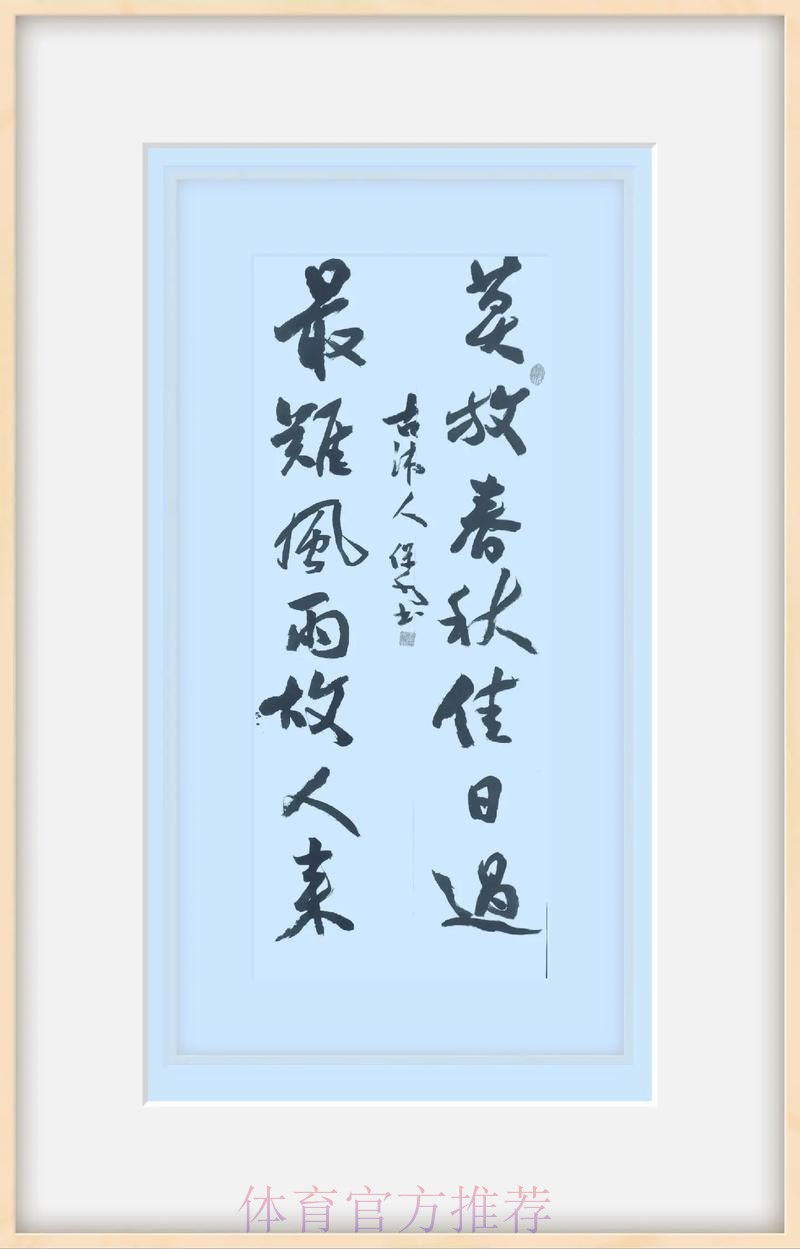 莫放春秋佳日過
最難風雨故人来
古沛人保书
体育官方推荐